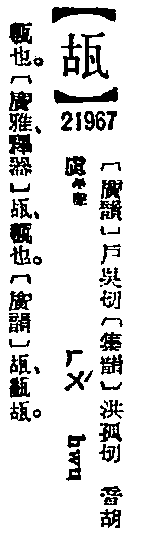 【瓳】
21967
〔廣韻〕戶吳切〔集韻〕洪孤切 音胡
虞平聲
ㄏㄨˊ hwu
瓳也。〔廣雅、釋器〕瓳、甎也。〔廣韻〕瓳、㼾瓳。